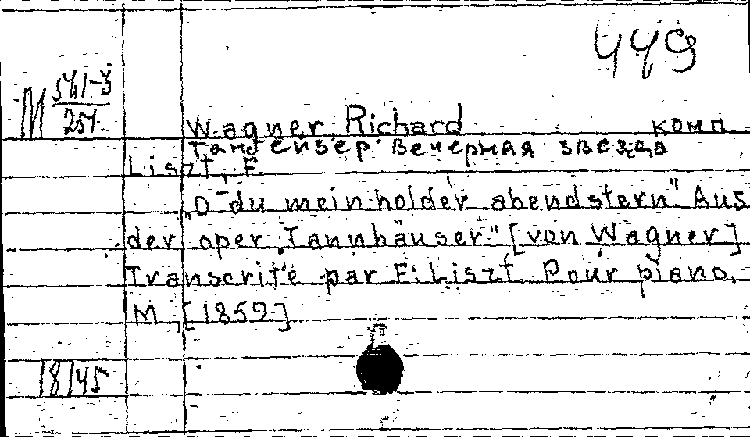 449
M 561-3/251
Wagner, Richard комп.
Тангейзер. Вечерняя звезда
Liszt, F.
"O du mein holder abendstern" Aus
der oper "Tannhäuser" [von Wagner]
Transcrite par F. Liszt. Pour piano.
M, [1859]
18145